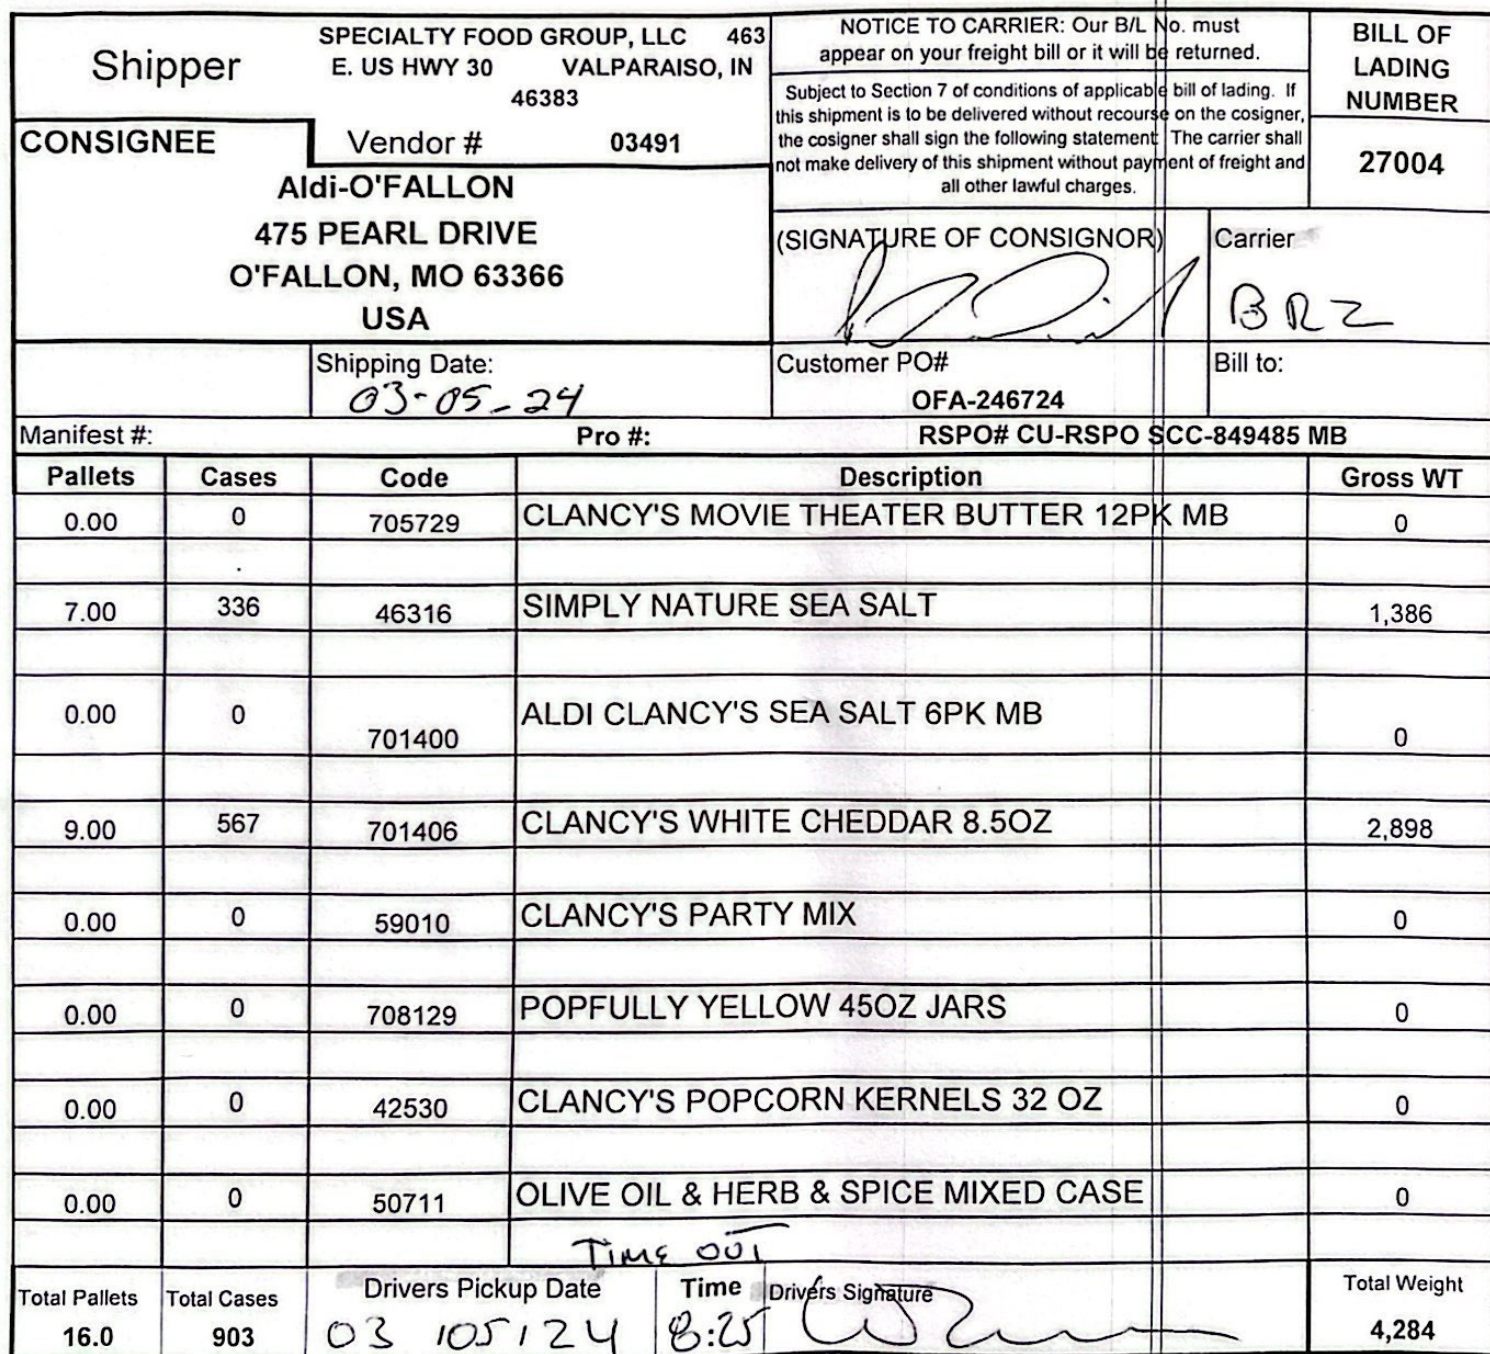 Shipper
SPECIALTY FOOD GROUP, LLC 463
E. US HWY 30 VALPARAISO, IN
46383
NOTICE TO CARRIER: Our B/L No. must
appear on your freight bill or it will be returned.
BILL OF
LADING
NUMBER
27004
Subject to Section 7 of conditions of applicable bill of lading. If
this shipment is to be delivered without recourse on the cosigner,
the cosigner shall sign the following statement The carrier shall
not make delivery of this shipment without payment of freight and
all other lawful charges.
CONSIGNEE
Vendor # 03491
Aldi-O'FALLON
475 PEARL DRIVE
O'FALLON, MO 63366
USA
(SIGNATURE OF CONSIGNOR)
Carrier
BRZ
Shipping Date:
03-05-24
Customer PO#
OFA-246724
Bill to:
Manifest #: Pro #: RSPO# CU-RSPO SCC-849485 MB
Pallets Cases Code Description Gross WT
0.00 0 705729 CLANCY'S MOVIE THEATER BUTTER 12PK MB 0
7.00 336 46316 SIMPLY NATURE SEA SALT 1,386
0.00 0 701400 ALDI CLANCY'S SEA SALT 6PK MB 0
9.00 567 701406 CLANCY'S WHITE CHEDDAR 8.5OZ 2,898
0.00 0 59010 CLANCY'S PARTY MIX 0
0.00 0 708129 POPFULLY YELLOW 45OZ JARS 0
0.00 0 42530 CLANCY'S POPCORN KERNELS 32 OZ 0
0.00 0 50711 OLIVE OIL & HERB & SPICE MIXED CASE 0
TIME OUT
Total Pallets Total Cases Drivers Pickup Date Time Drivers Signature Total Weight
16.0 903 03/05/24 8:25 4,284